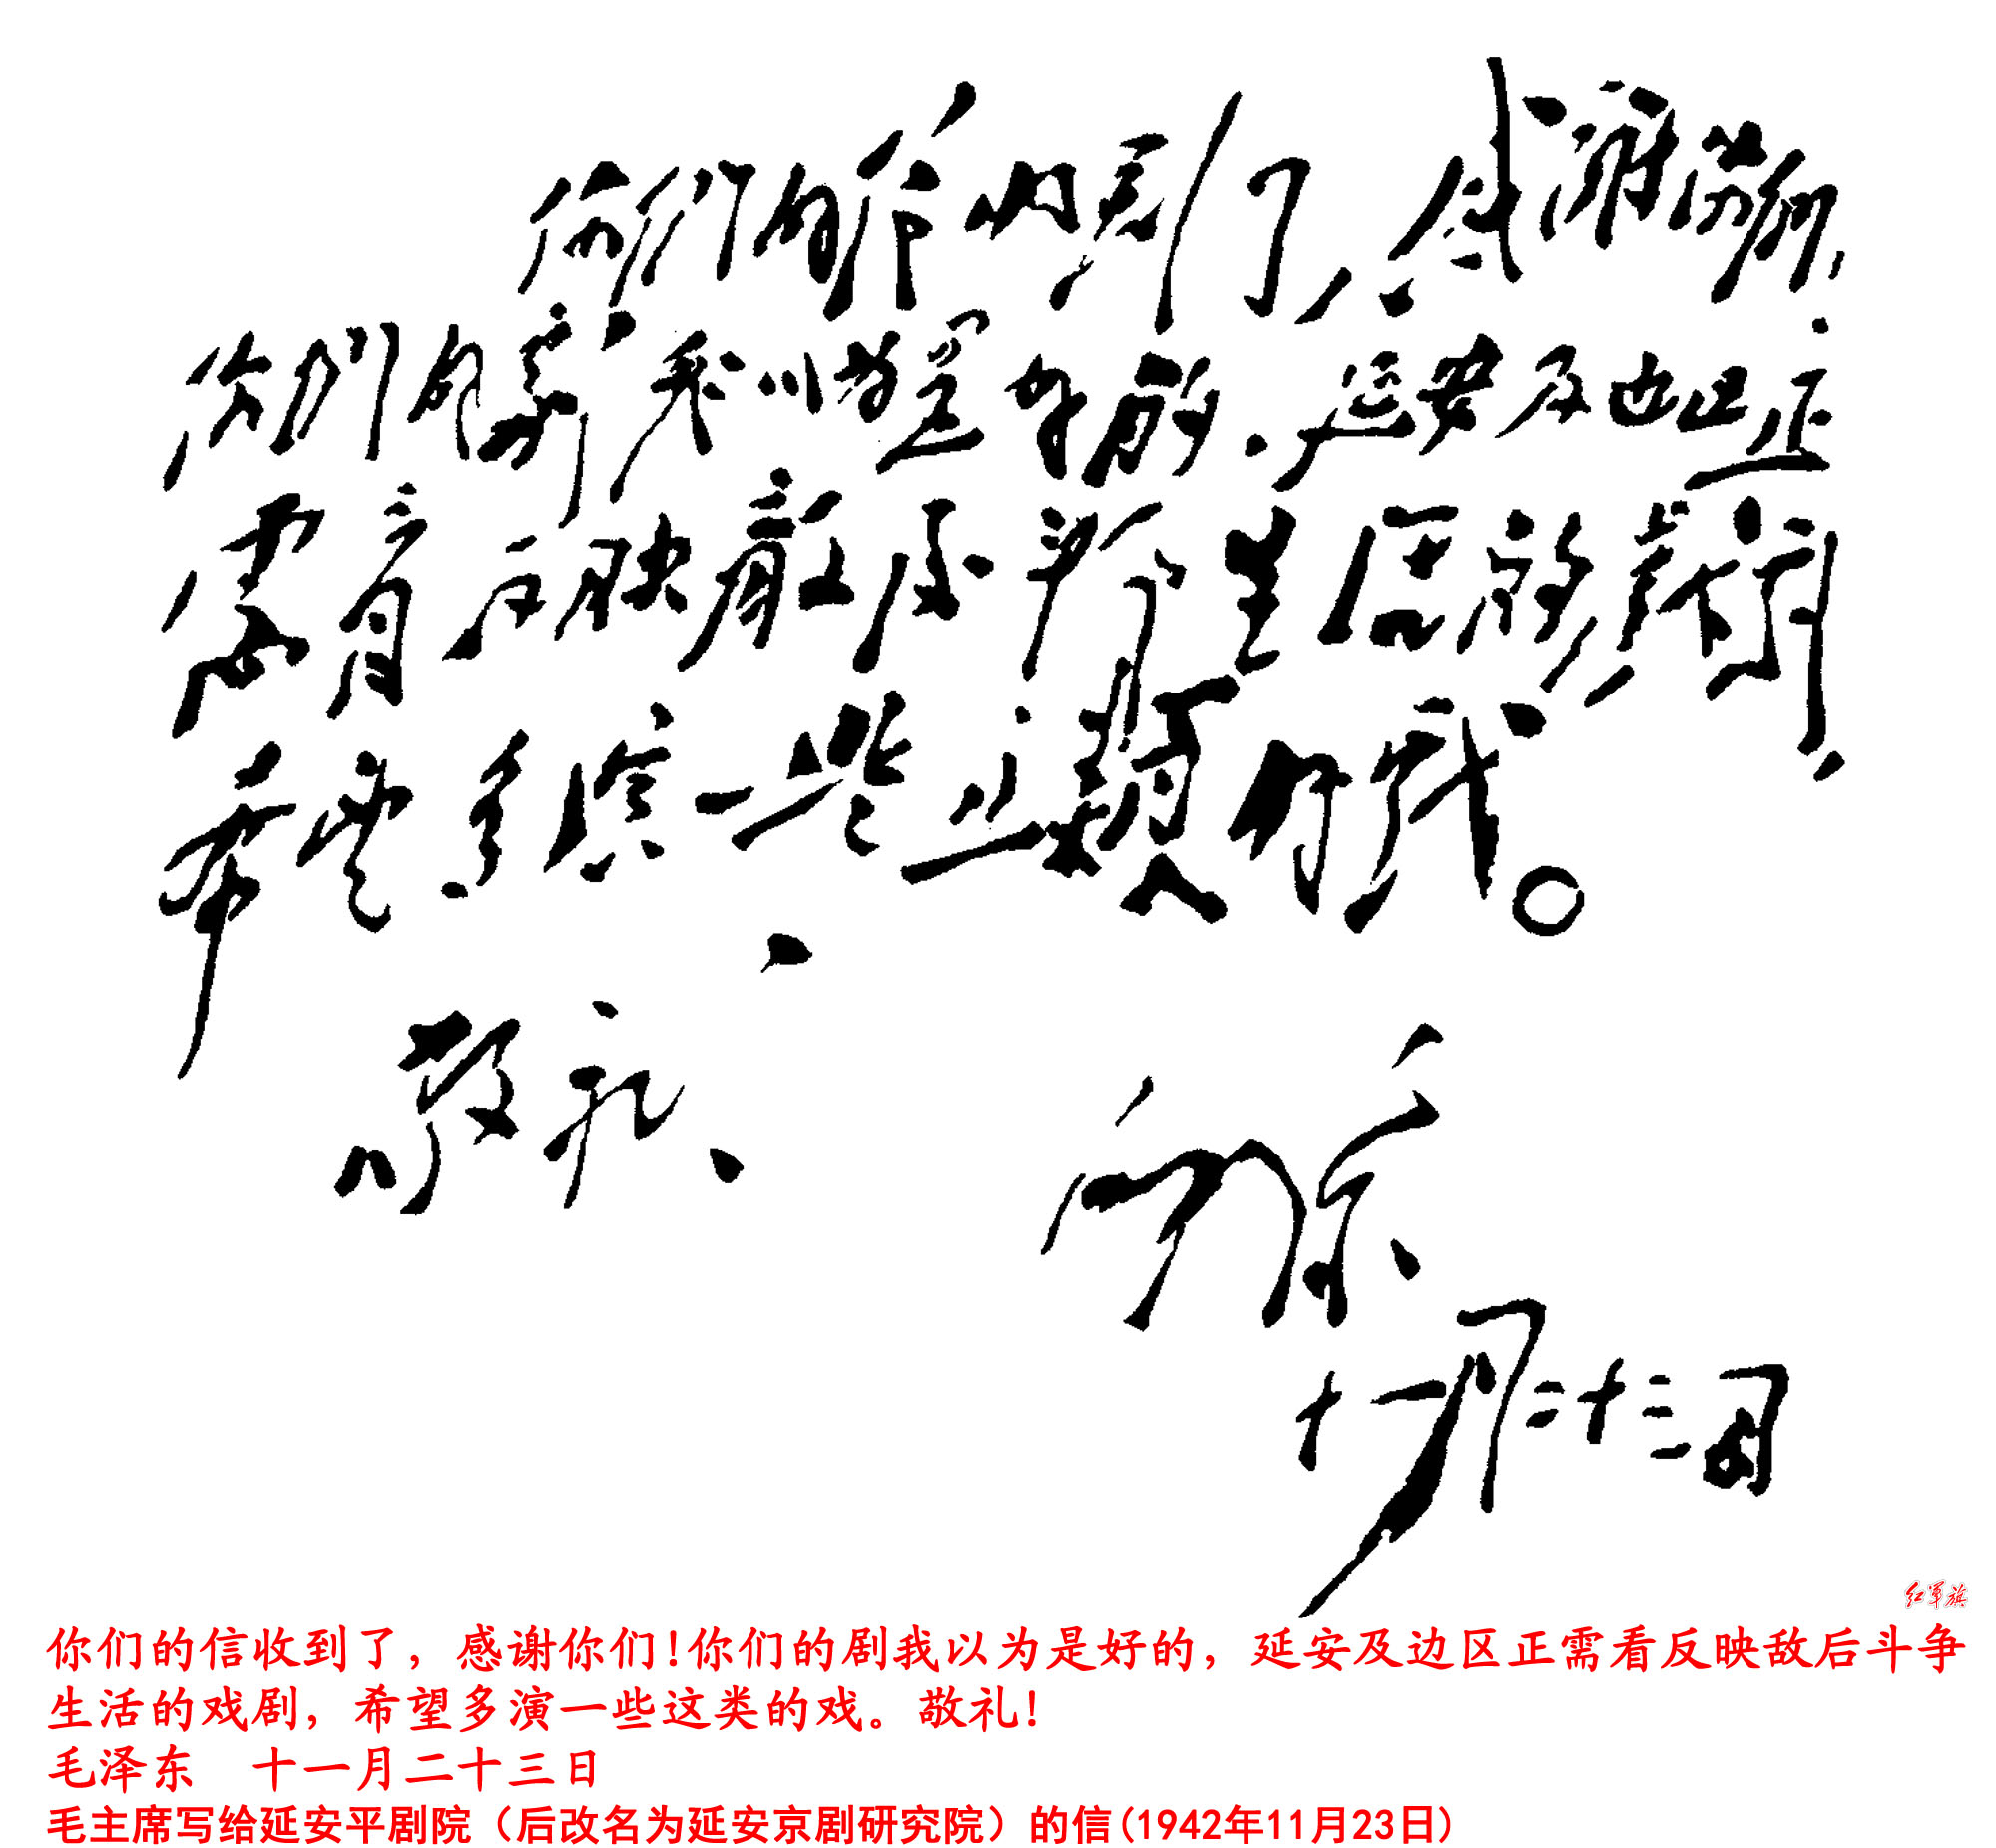 你们的信收到了，感謝你们！
你们的劇我以为是好的．延安及边区正
需看反映敵后斗争生活的戏劇，
希望多演一些这類的戏。
敬礼！
毛泽东
十一月二十三日
红军旗
你们的信收到了，感谢你们！你们的剧我以为是好的，延安及边区正需看反映敌后斗争
生活的戏剧，希望多演一些这类的戏。敬礼！
毛泽东 十一月二十三日
毛主席写给延安平剧院（后改名为延安京剧研究院）的信(1942年11月23日)